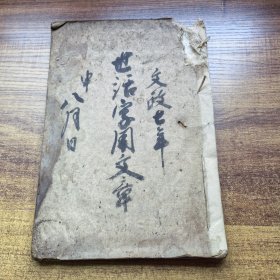 文政七年
世話字用文章
申八月日